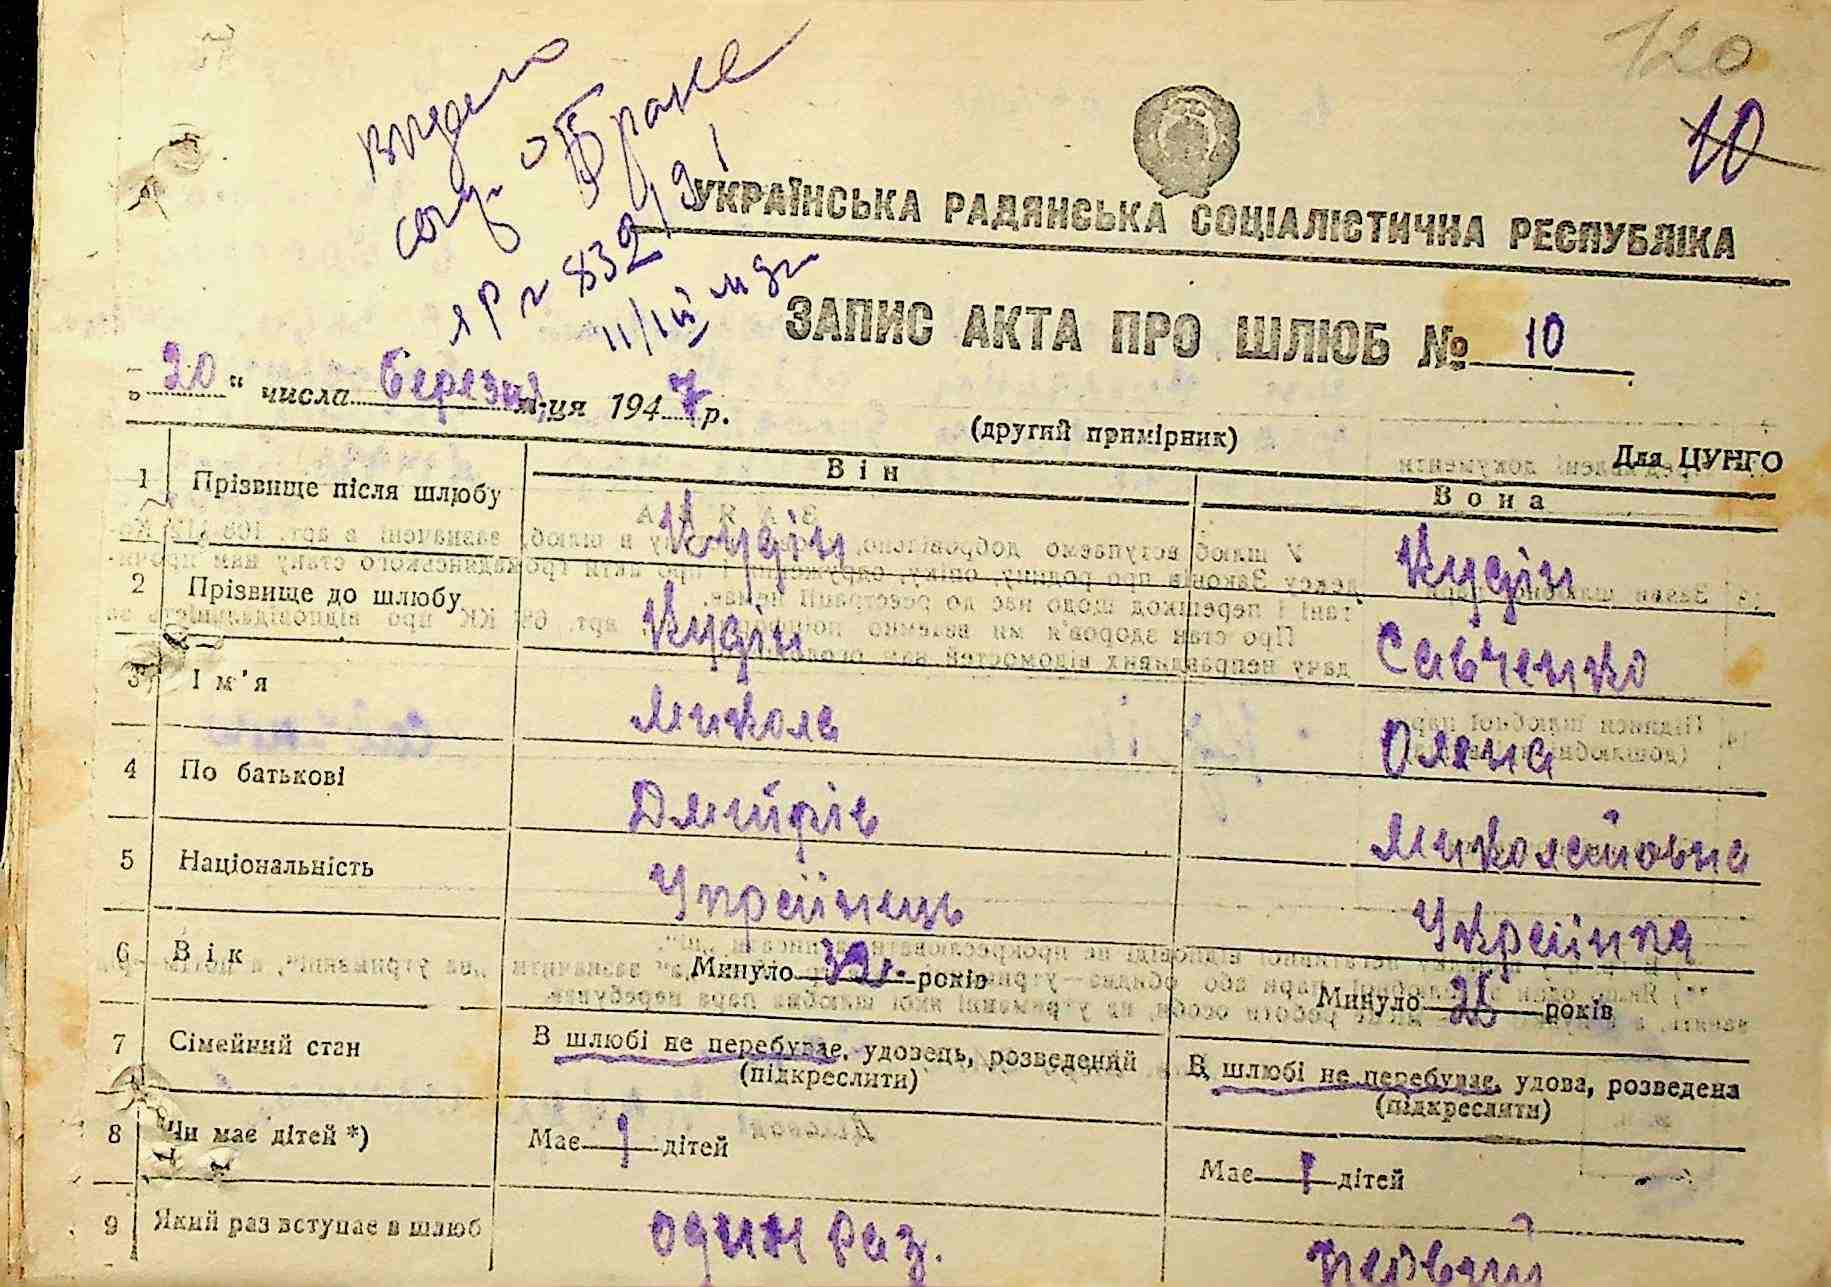 120
10
видено
о браке
№ 832/91
УКРАЇНСЬКА РАДЯНСЬКА СОЦІАЛІСТИЧНА РЕСПУБЛІКА
ЗАПИС АКТА ПРО ШЛЮБ № 10
„20“ числа березня м-ця 1947 р.
(другий примірник)
Для ЦУНГО
Він Вона
1 Прізвище після шлюбу Кудін Кудін
2 Прізвище до шлюбу Кудін Савченко
3 Ім'я Микола Оляна
4 По батькові Дмитрів Миколаєйовна
5 Національність Украйінець Украйінка
6 Вік Минуло 32 років Минуло 25 років
7 Сімейний стан В шлюбі не перебуває, удовець, розведений В шлюбі не перебуває, удова, розведена
(підкреслити) (підкреслити)
8 Чи має дітей *) Має 1 дітей Має 1 дітей
9 Який раз вступає в шлюб один раз. первый